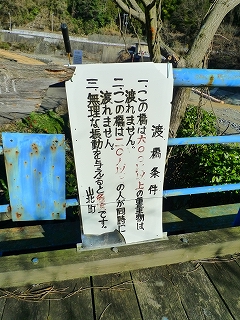 渡橋条件
一、この橋は六〇〇㎏以上の重量物は
渡れません。
二、この橋は二〇人以上の人が同時に
渡れません。
三、無理な振動を与えると危険です。
山北町